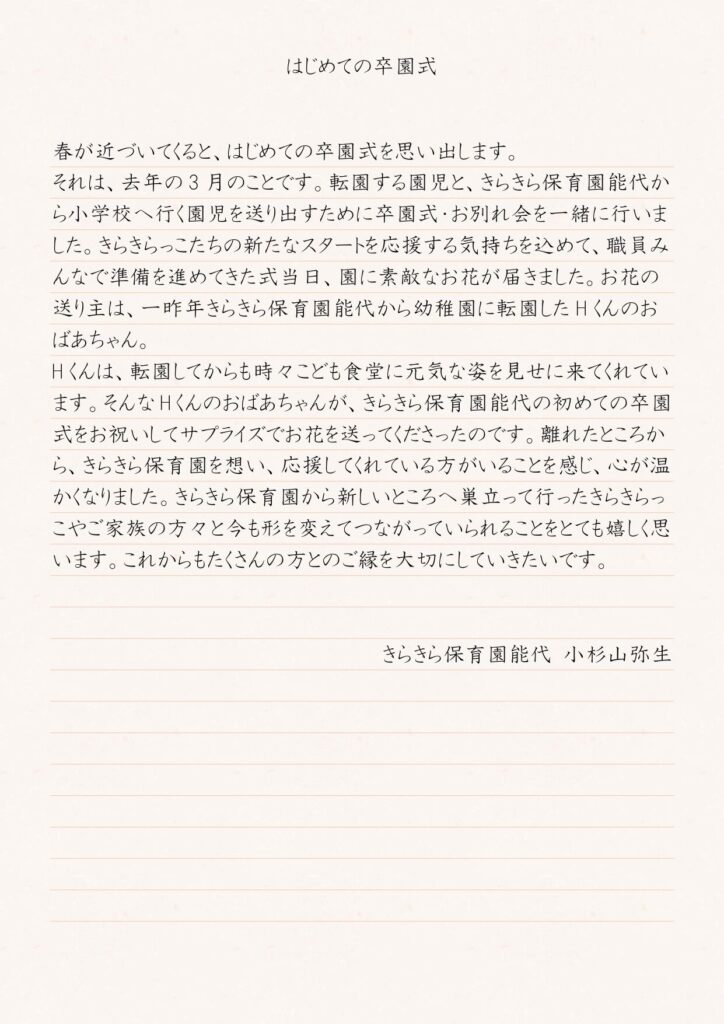 はじめての卒園式
春が近づいてくると、はじめての卒園式を思い出します。
それは、去年の3月のことです。転園する園児と、きらきら保育園能代か
ら小学校へ行く園児を送り出すために卒園式・お別れ会を一緒に行いま
した。きらきらっこたちの新たなスタートを応援する気持ちを込めて、職員み
んなで準備を進めてきた式当日、園に素敵なお花が届きました。お花の
送り主は、一昨年きらきら保育園能代から幼稚園に転園したHくんのお
ばあちゃん。
Hくんは、転園してからも時々こども食堂に元気な姿を見せに来てくれてい
ます。そんなHくんのおばあちゃんが、きらきら保育園能代の初めての卒園
式をお祝いしてサプライズでお花を送ってくださったのです。離れたところか
ら、きらきら保育園を想い、応援してくれている方がいることを感じ、心が温
かくなりました。きらきら保育園から新しいところへ巣立って行ったきらきらっ
こやご家族の方々と今も形を変えてつながっていられることをとても嬉しく思
います。これからもたくさんの方とのご縁を大切にしていきたいです。
きらきら保育園能代 小杉山弥生